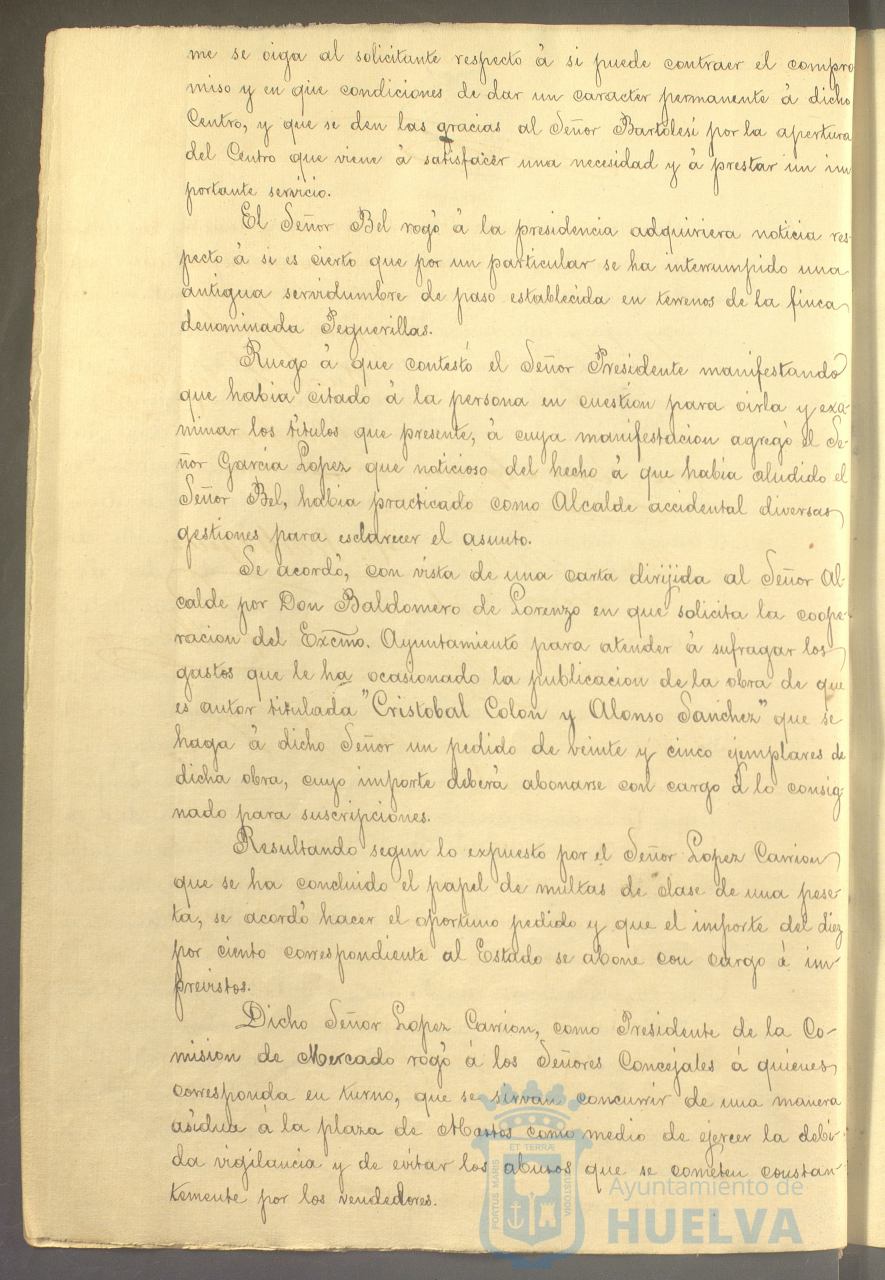 me se oiga al solicitante respecto á si puede contraer el compro
miso y en qúe condiciones de dar un caracter permanente á dicho
Centro, y que se den las gracias al Señor Bartolesi por la apertura
del Centro que viene á satisfacer una necesidad y á prestar un im
portante servicio.
El Señor Bel rogó á la presidencia adquiriera noticia res-
pecto á si es cierto que por un particular se ha interrumpido una
antigua servidumbre de paso establecida en terrenos de la finca
denominada Peguerillas.
Ruego á que contestó el Señor Presidente manifestando
que habia citado á la persona en cuestion para oirla y exa-
minar los titulos que presente, á cuya manifestacion agregó el Se-
ñor Garcia Lopez que noticioso del hecho á que habia aludido el
Señor Bel, habia practicado como Alcalde accidental diversas
gestiones para esclarecer el asunto.
Se acordó, con vista de una carta dirijida al Señor Al-
calde por Don Baldomero de Lorenzo en que solicita la coope-
racion del Excmo. Ayuntamiento para atender á sufragar los
gastos que le ha ocasionado la publicacion de la obra de que
es autor titulada "Cristobal Colon y Alonso Sanchez" que se
haga á dicho Señor un pedido de veinte y cinco ejemplares de
dicha obra, cuyo importe deberá abonarse con cargo á lo consig-
nado para suscripciones.
Resultando segun lo expuesto por el Señor Lopez Carrion
que se ha concluido el papel de multas de clase de una pese-
ta, se acordó hacer el oportuno pedido y que el importe del diez
por ciento correspondiente al Estado se abone con cargo á im-
previstos.
Dicho Señor Lopez Carrion, como Presidente de la Co-
mision de Mercado rogó á los Señores Concejales á quienes
corresponda en turno, que se sirvan concurrir de una manera
asidua á la plaza de Abastos como medio de ejercer la debi-
da vigilancia y de evitar los abusos que se cometen constan-
temente por los vendedores.
ET TERRÆ
PORTUS MARIS
CUSTODIA
Ayuntamiento de
HUELVA